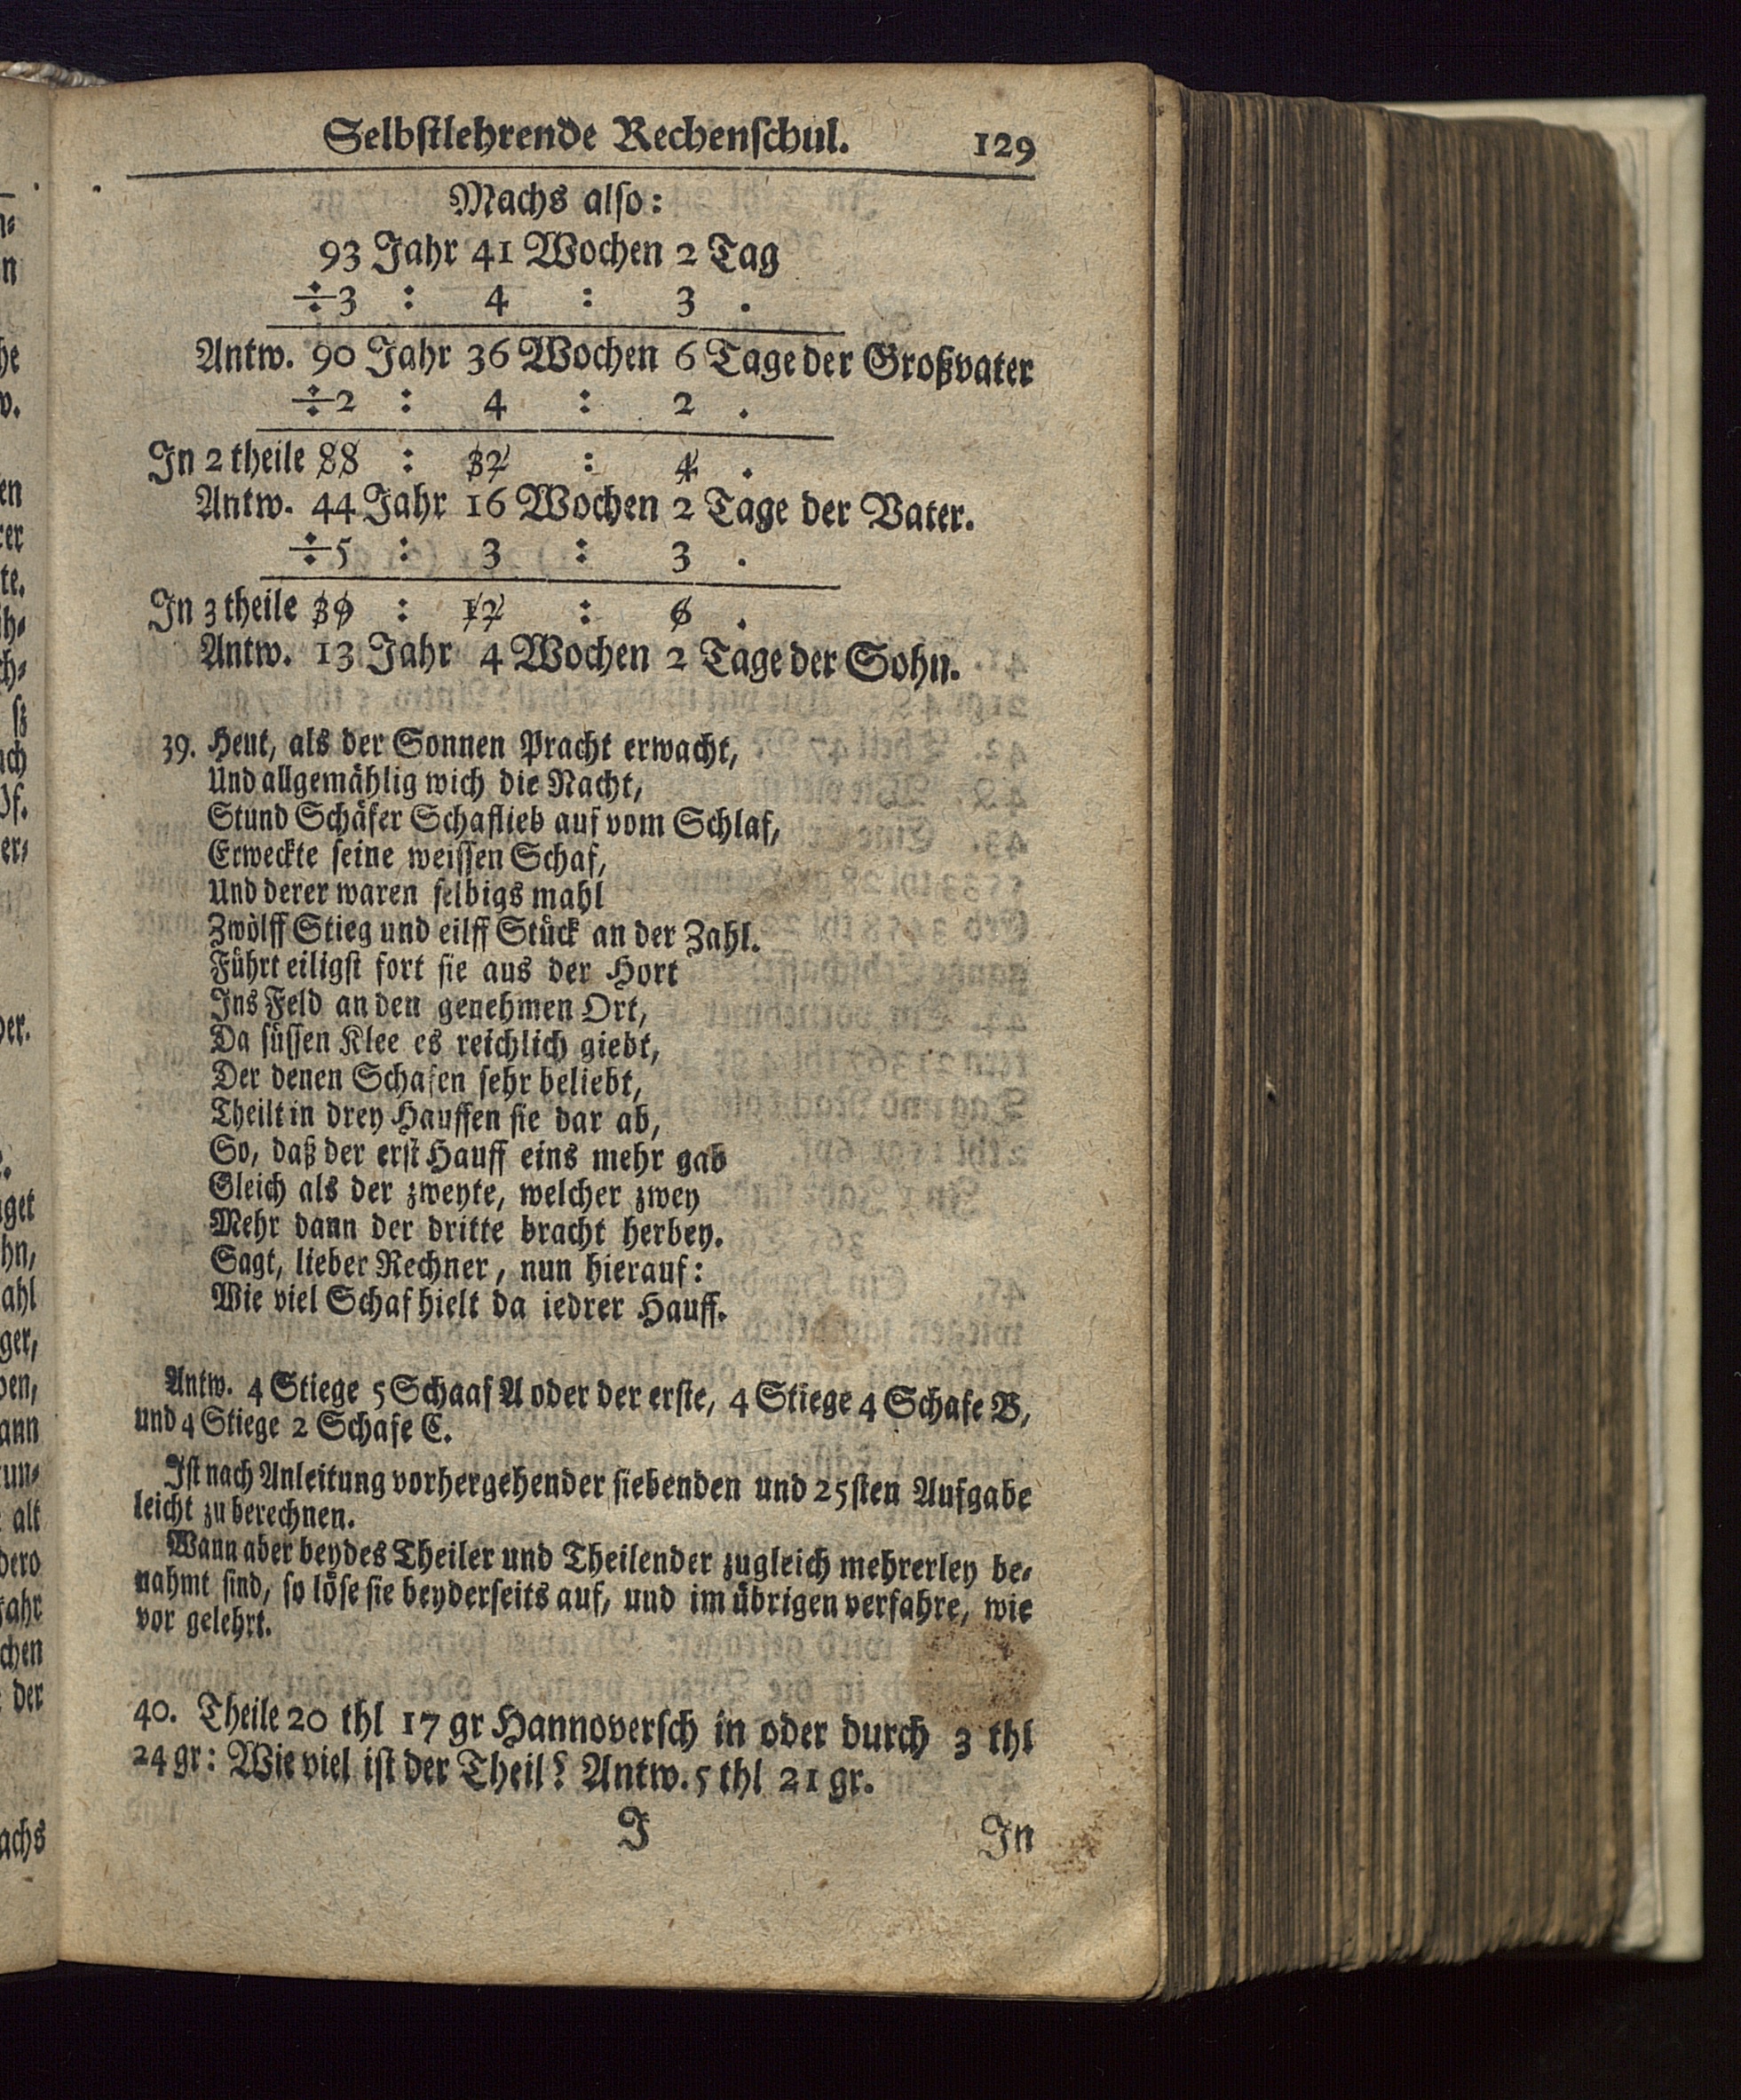 Selbstlehrende Rechenschul. 129
Machs also:
93 Jahr 41 Wochen 2 Tag
÷3 : 4 : 3 .
Antw. 90 Jahr 36 Wochen 6 Tage der Großvater
÷2 : 4 : 2 .
In 2 theile 88 : 32 : 4 .
Antw. 44 Jahr 16 Wochen 2 Tage der Vater.
÷5 : 3 : 3 .
In 3 theile 39 : 12 : 6 .
Antw. 13 Jahr 4 Wochen 2 Tage der Sohn.
39. Heut, als der Sonnen Pracht erwacht,
Und allgemählig wich die Nacht,
Stund Schäfer Schaflieb auf vom Schlaf,
Erweckte seine weissen Schaf,
Und derer waren selbigs mahl
Zwölff Stieg und eilff Stück an der Zahl.
Führt eiligst fort sie aus der Hort
Ins Feld an den genehmen Ort,
Da süssen Klee es reichlich giebt,
Der denen Schafen sehr beliebt,
Theilt in drey Hauffen sie dar ab,
So, daß der erst Hauff eins mehr gab
Gleich als der zweyte, welcher zwey
Mehr dann der dritte bracht herbey.
Sagt, lieber Rechner, nun hierauf:
Wie viel Schaf hielt da iedrer Hauff.
Antw. 4 Stiege 5 Schaaf A oder der erste, 4 Stiege 4 Schafe B,
und 4 Stiege 2 Schafe C.
Ist nach Anleitung vorhergehender siebenden und 25sten Aufgabe
leicht zu berechnen.
Wann aber beydes Theiler und Theilender zugleich mehrerley be-
nahmt sind, so löse sie beyderseits auf, und im übrigen verfahre, wie
vor gelehrt.
40. Theile 20 thl 17 gr Hannoversch in oder durch 3 thl
24 gr: Wie viel ist der Theil? Antw. 5 thl 21 gr.
J In